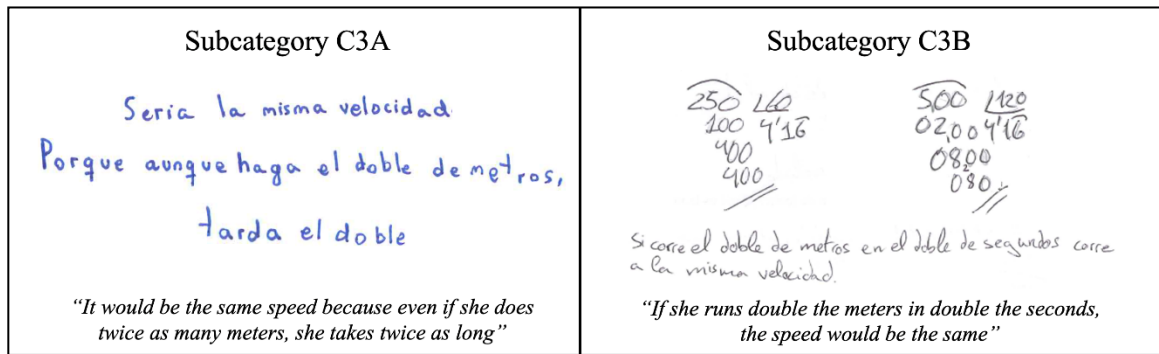 Subcategory C3A
Seria la misma velocidad.
Porque aunque haga el doble de metros,
tarda el doble
"It would be the same speed because even if she does
twice as many meters, she takes twice as long"
Subcategory C3B
250 | 60
100 4'16
400
400
500 | 120
02,00 4'16
08,00
080
si corre el doble de metros en el doble de segundos corre
a la misma velocidad.
"If she runs double the meters in double the seconds,
the speed would be the same"